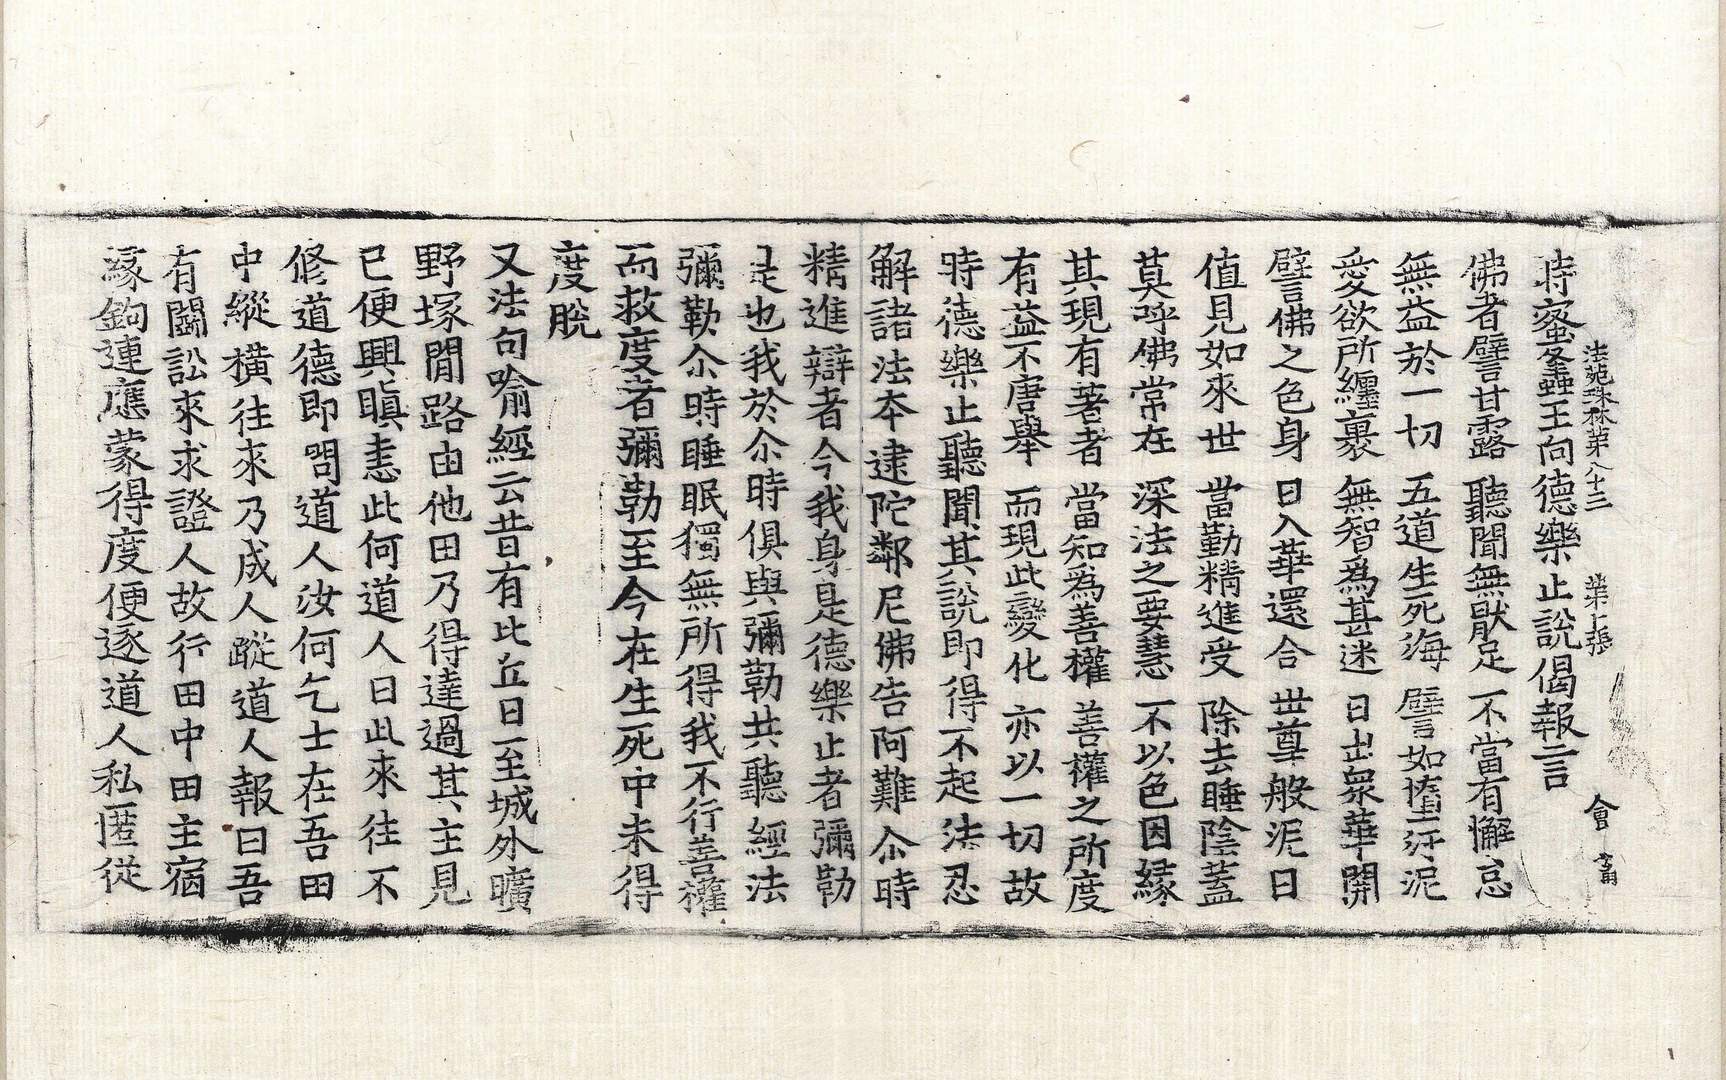 法苑珠林第八十三 第七張 會
時蜜蜂王向德樂止說偈報言
佛者譬甘露 聽聞無猒足 不當有懈怠
無益於一切 五道生死海 譬如墮汙泥
愛欲所纏裹 無智為甚迷 日出衆華開
譬佛之色身 日入華還合 世尊般泥曰
值見如來世 當勤精進受 除去睡陰蓋
莫呼佛常在 深法之要慧 不以色因緣
其現有著者 當知為善權 善權之所度
有益不唐舉 而現此變化 亦以一切故
時德樂止聽聞其說即得不起法忍
解諸法本逮陀鄰尼佛告阿難尒時
精進辯者今我身是德樂止者彌勒
是也我於尒時俱與彌勒共聽經法
彌勒尒時睡眠獨無所得我不行善權
而救度者彌勒至今在生死中未得
度脫
又法句喻經云昔有比丘日至城外曠
野塚間路由他田乃得達過其主見
已便興瞋恚此何道人日此來往不
修道德即問道人汝何乞士在吾田
中縱橫往來乃成人蹤道人報曰吾
有鬪訟來求證人故行田中田主宿
緣鉤連應蒙得度便逐道人私匿從